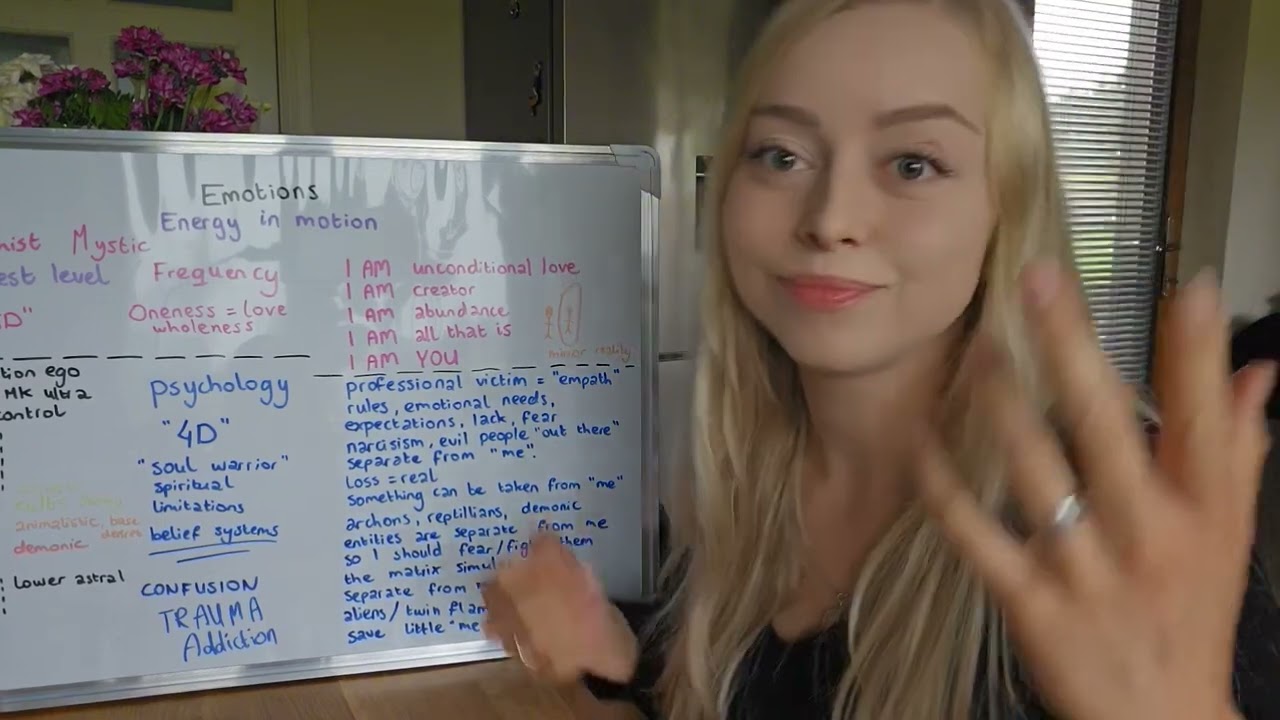 Emotions
Energy in motion
Mystic
level
Frequency
Oneness = love
wholeness
I AM unconditional love
I AM creator
I AM abundance
I AM all that is
I AM YOU
mirror reality
ego
MK ultra
psychology
"4D"
"soul warrior"
spiritual
limitations
belief systems
animalistic, base
desires
demonic
Lower astral
CONFUSION
TRAUMA
Addiction
professional victim = "empath"
rules, emotional needs,
expectations, lack, fear
narcisism, evil people "out there"
separate from "me".
Loss = real
something can be taken from "me"
archons, reptillians, demonic
entities are separate from me
so I should fear/ them
the matrix
separate from
aliens/twin
save little "me